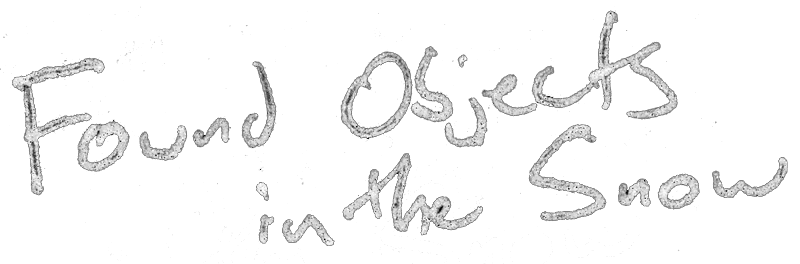 Found Objects
in the Snow